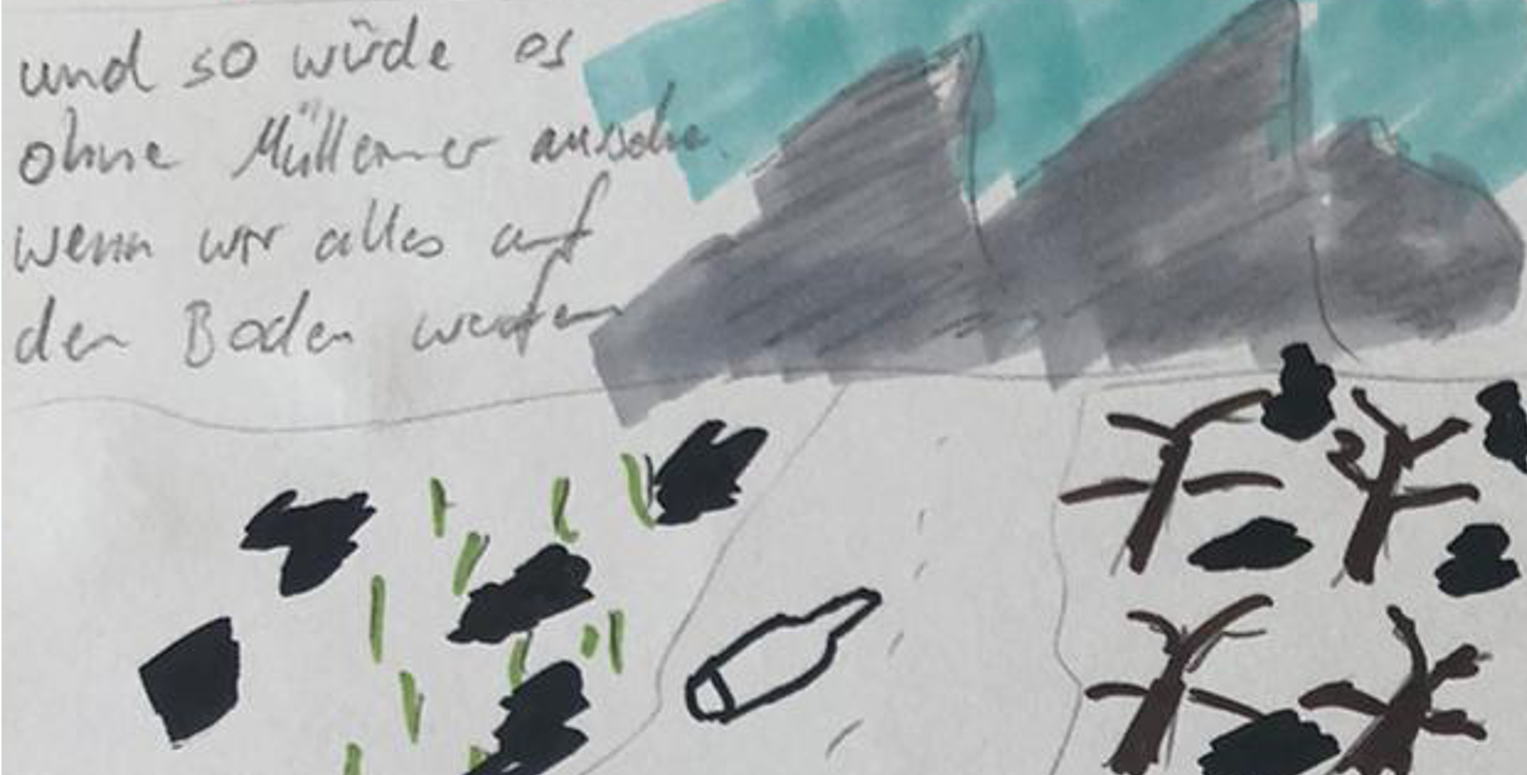 und so würde es
ohne Mülleimer aussehe
wenn wir alles auf
den Boden werfen